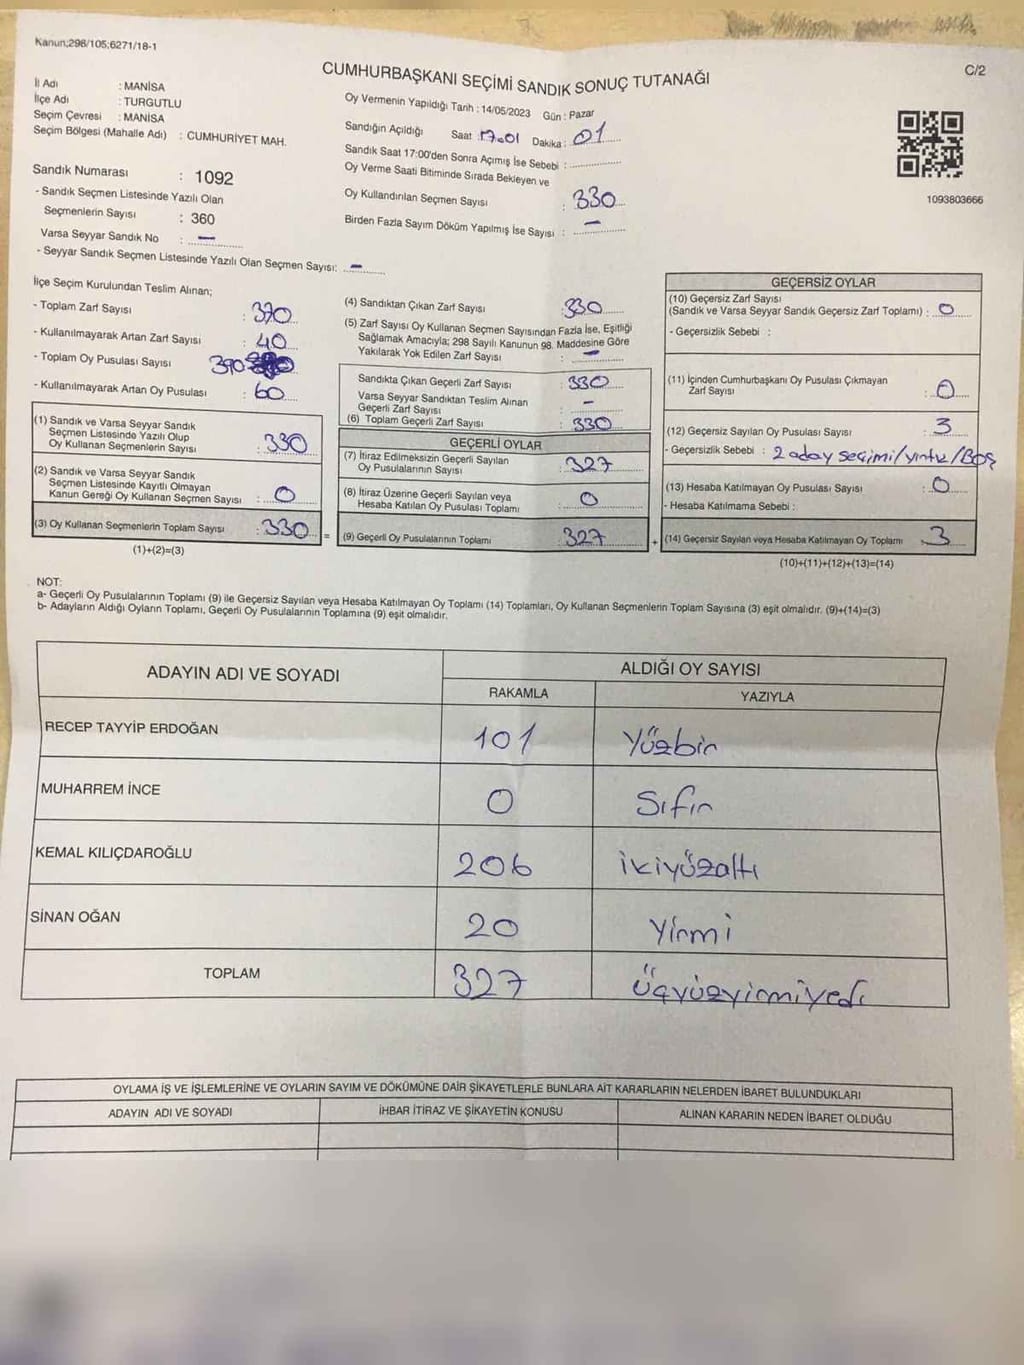 Kanun;298/105;6271/18-1
C/2
CUMHURBAŞKANI SEÇİMİ SANDIK SONUÇ TUTANAĞI
İl Adı : MANİSA
İlçe Adı : TURGUTLU
Seçim Çevresi : MANİSA
Seçim Bölgesi (Mahalle Adı) : CUMHURİYET MAH.
Sandık Numarası : 1092
- Sandık Seçmen Listesinde Yazılı Olan
Seçmenlerin Sayısı : 360
Varsa Seyyar Sandık No : -
- Seyyar Sandık Seçmen Listesinde Yazılı Olan Seçmen Sayısı: -
Oy Vermenin Yapıldığı Tarih : 14/05/2023 Gün : Pazar
Sandığın Açıldığı Saat : 17.01 Dakika : 01
Sandık Saat 17:00'den Sonra Açımış İse Sebebi :
Oy Verme Saati Bitiminde Sırada Bekleyen ve
Oy Kullandırılan Seçmen Sayısı : 330
Birden Fazla Sayım Döküm Yapılmış İse Sayısı : -
1093803666
İlçe Seçim Kurulundan Teslim Alınan;
- Toplam Zarf Sayısı : 370
- Kullanılmayarak Artan Zarf Sayısı : 40
- Toplam Oy Pusulası Sayısı 390
- Kullanılmayarak Artan Oy Pusulası : 60
(1) Sandık ve Varsa Seyyar Sandık
Seçmen Listesinde Yazılı Olup
Oy Kullanan Seçmenlerin Sayısı : 330
(2) Sandık ve Varsa Seyyar Sandık
Seçmen Listesinde Kayıtlı Olmayan
Kanun Gereği Oy Kullanan Seçmen Sayısı : 0
(3) Oy Kullanan Seçmenlerin Toplam Sayısı : 330
(1)+(2)=(3)
=
(4) Sandıktan Çıkan Zarf Sayısı : 330
(5) Zarf Sayısı Oy Kullanan Seçmen Sayısından Fazla İse, Eşitliği
Sağlamak Amacıyla; 298 Sayılı Kanunun 98. Maddesine Göre
Yakılarak Yok Edilen Zarf Sayısı : -
Sandıkta Çıkan Geçerli Zarf Sayısı : 330
Varsa Seyyar Sandıktan Teslim Alınan
Geçerli Zarf Sayısı : -
(6) Toplam Geçerli Zarf Sayısı : 330
GEÇERLİ OYLAR
(7) İtiraz Edilmeksizin Geçerli Sayılan
Oy Pusulalarının Sayısı : 327
(8) İtiraz Üzerine Geçerli Sayılan veya
Hesaba Katılan Oy Pusulası Toplamı : 0
(9) Geçerli Oy Pusulalarının Toplamı : 327
+
GEÇERSİZ OYLAR
(10) Geçersiz Zarf Sayısı
(Sandık ve Varsa Seyyar Sandık Geçersiz Zarf Toplamı) : 0
- Geçersizlik Sebebi :
(11) İçinden Cumhurbaşkanı Oy Pusulası Çıkmayan
Zarf Sayısı : 0
(12) Geçersiz Sayılan Oy Pusulası Sayısı : 3
- Geçersizlik Sebebi : 2 aday seçimi/yırtık/Boş
(13) Hesaba Katılmayan Oy Pusulası Sayısı : 0
- Hesaba Katılmama Sebebi :
(14) Geçersiz Sayılan veya Hesaba Katılmayan Oy Toplamı : 3
(10)+(11)+(12)+(13)=(14)
NOT:
a- Geçerli Oy Pusulalarının Toplamı (9) ile Geçersiz Sayılan veya Hesaba Katılmayan Oy Toplamı (14) Toplamları, Oy Kullanan Seçmenlerin Toplam Sayısına (3) eşit olmalıdır. (9)+(14)=(3)
b- Adayların Aldığı Oyların Toplamı, Geçerli Oy Pusulalarının Toplamına (9) eşit olmalıdır.
ADAYIN ADI VE SOYADI ALDIĞI OY SAYISI
RAKAMLA YAZIYLA
RECEP TAYYİP ERDOĞAN 101 Yüzbir
MUHARREM İNCE 0 Sıfır
KEMAL KILIÇDAROĞLU 206 ikiyüzaltı
SİNAN OĞAN 20 Yirmi
TOPLAM 327 Üçyüzyirmiyedi
OYLAMA İŞ VE İŞLEMLERİNE VE OYLARIN SAYIM VE DÖKÜMÜNE DAİR ŞİKAYETLERLE BUNLARA AİT KARARLARIN NELERDEN İBARET BULUNDUKLARI
ADAYIN ADI VE SOYADI İHBAR İTİRAZ VE ŞİKAYETİN KONUSU ALINAN KARARIN NEDEN İBARET OLDUĞU